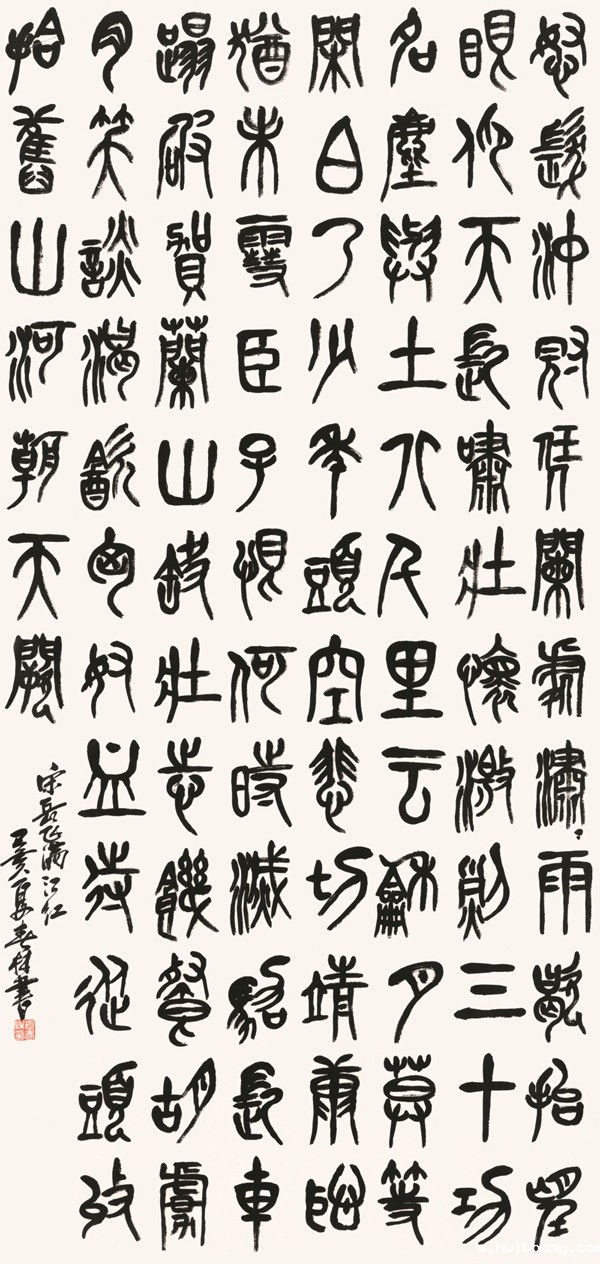 怒髮沖冠凭闌處瀟〻雨歇抬望
眼仰天長嘯壯懷激烈三十功
名塵與土八千里云龢月莫等
閑白了少年頭空悲切靖康恥
猶未雪臣子恨何時滅駕長車
蹋破賀蘭山缺壯志饑餐胡虜
肉笑談渴飲匈奴血待從頭收
拾舊山河朝天闕
宋岳飛滿江紅
亥夏書